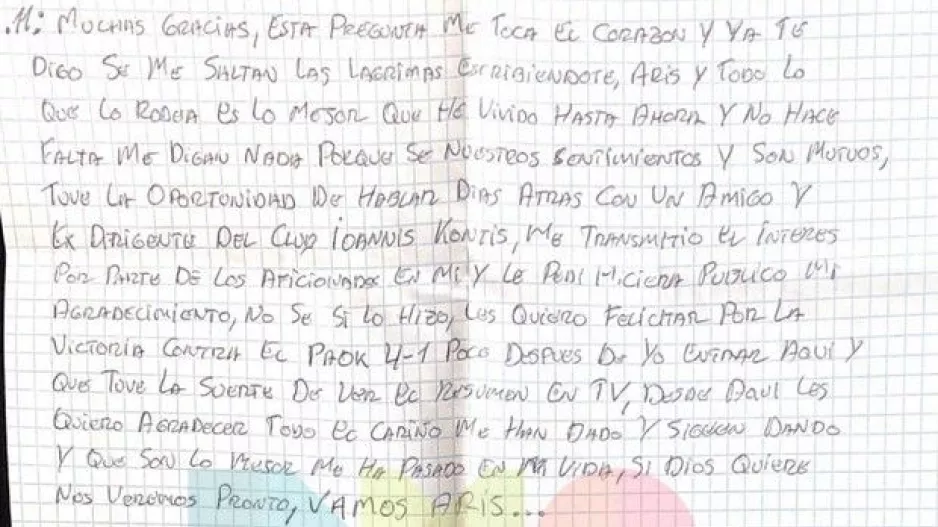 .11: MUCHAS GRACIAS, ESTA PREGUNTA ME TOCA EL CORAZON Y YA TE
DIGO SE ME SALTAN LAS LAGRIMAS ESCRIBIENDOTE, ARIS Y TODO LO
QUE LO RODEA ES LO MEJOR QUE HE VIVIDO HASTA AHORA Y NO HACE
FALTA ME DIGAN NADA PORQUE SE NUESTROS SENTIMIENTOS Y SON MUTUOS,
TUVE LA OPORTUNIDAD DE HABLAR DIAS ATRAS CON UN AMIGO Y
EX DIRIGENTE DEL CLUB IOANNIS KONTIS, ME TRANSMITIO EL INTERES
POR PARTE DE LOS AFICIONADOS EN MI Y LE PEDI HICIERA PUBLICO MI
AGRADECIMIENTO, NO SE SI LO HIZO, LES QUIERO FELICITAR POR LA
VICTORIA CONTRA EL PAOK 4-1 POCO DESPUES DE YO ENTRAR AQUI Y
QUE TUVE LA SUERTE DE VER EL RESUMEN EN TV, DESDE AQUI LES
QUIERO AGRADECER TODO EL CARIÑO ME HAN DADO Y SIGUEN DANDO
Y QUE SON LO MEJOR ME HA PASADO EN MI VIDA, SI DIOS QUIERE
NOS VEREMOS PRONTO, VAMOS ARIS...